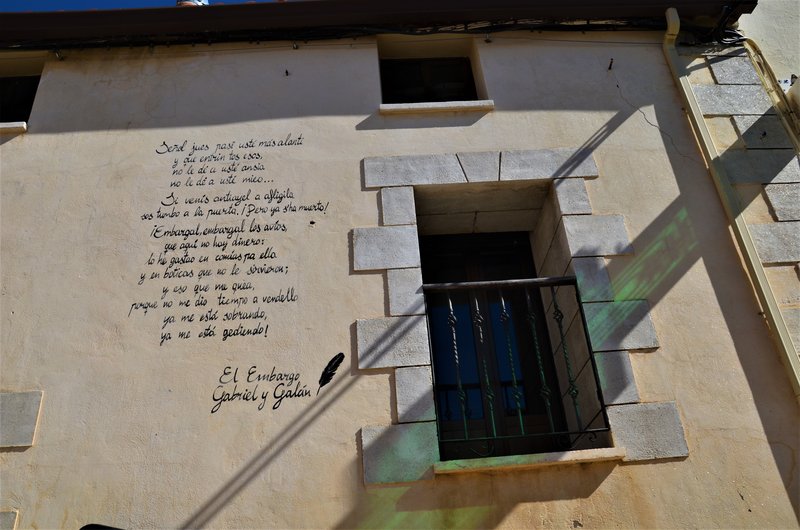 Señol jues, pasi usté más alanti
y que entrin tos esos,
no le dé a usté ansia
no le dé a usté mieo...
Si venís antiayel a afligila
sos tumbo a la puerta. ¡Pero ya s'ha muerto!
¡Embargal, embargal los avíos,
que aquí no hay dinero:
lo he gastao en comías pa ella
y en boticas que no le sirvieron;
y eso que me quea,
porque no me dio tiempo a vendello,
ya me está sobrando,
ya me está gediendo!
El Embargo
Gabriel y Galán